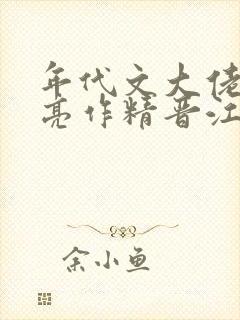 年代文大佬
亮作精晋江
余小鱼